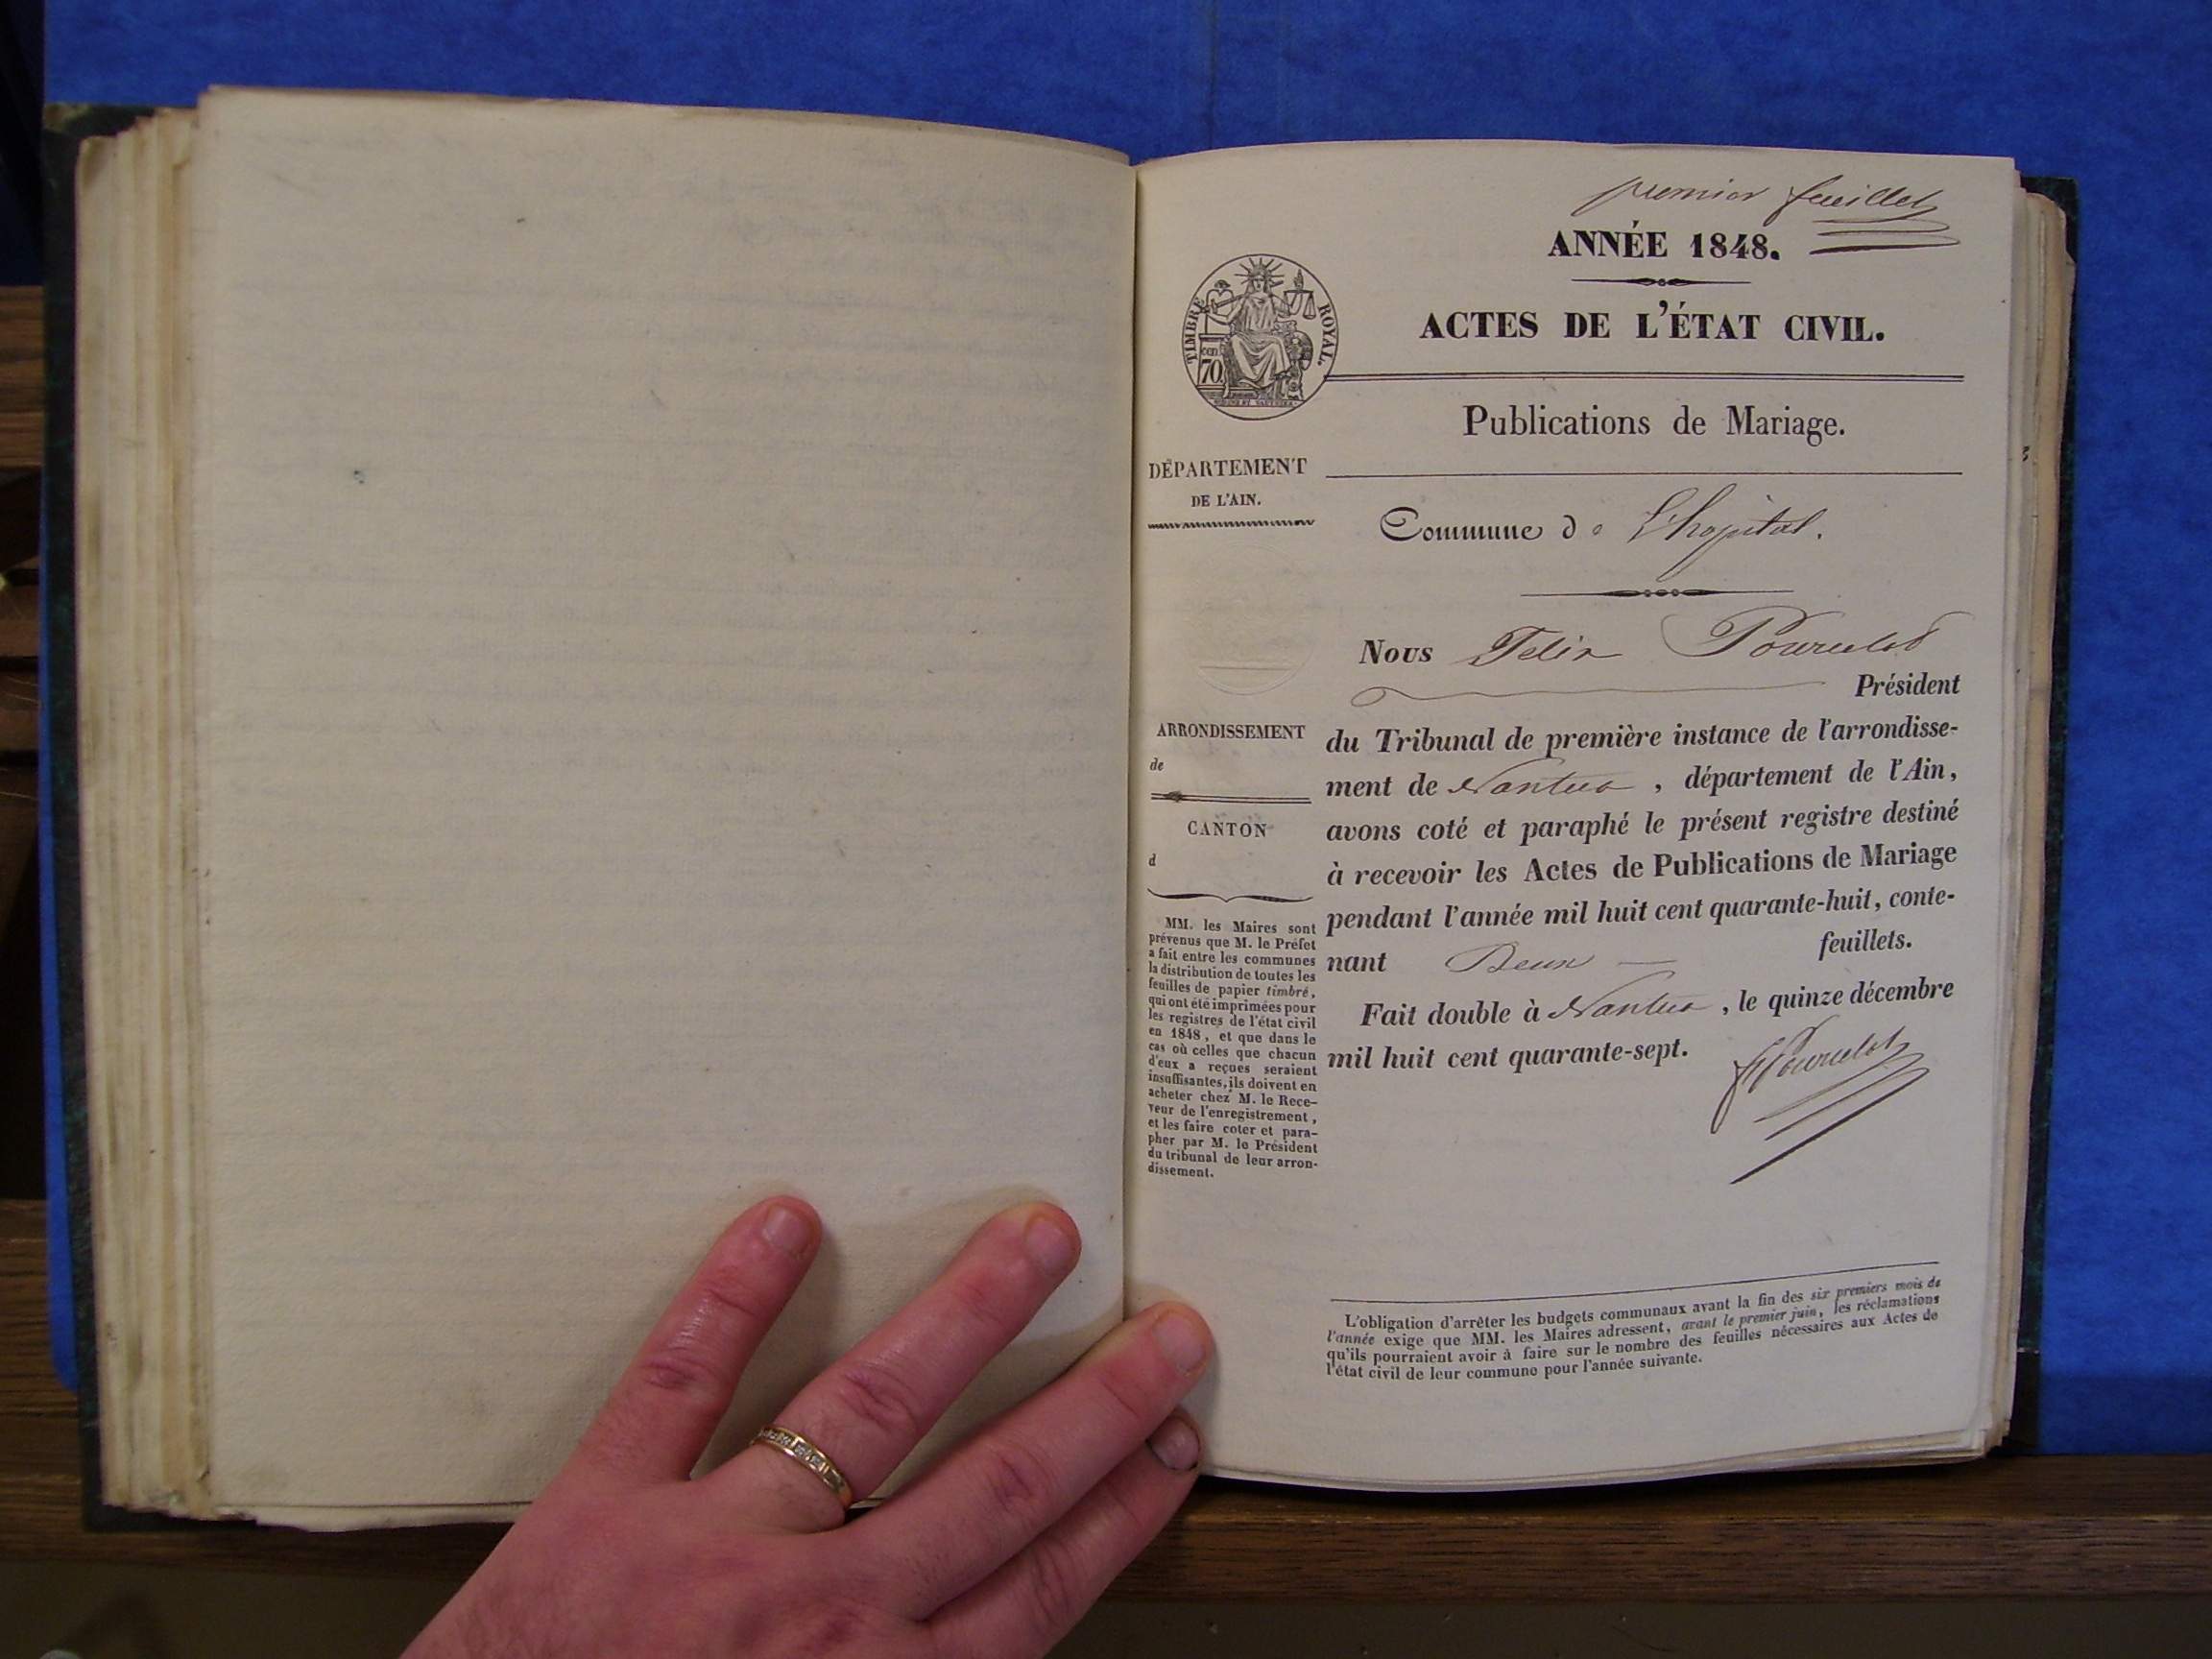 premier feuillet
ANNÉE 1848.
TIMBRE ROYAL.
cen
70.
ACTES DE L'ÉTAT CIVIL.
Publications de Mariage.
DÉPARTEMENT
DE L'AIN.
Commune de L'hopital.
Nous Felix Pourcelot
Président
du Tribunal de première instance de l'arrondisse-
ment de Nantua, département de l'Ain,
avons coté et paraphé le présent registre destiné
à recevoir les Actes de Publications de Mariage
pendant l'année mil huit cent quarante-huit, conte-
nant Deux feuillets.
Fait double à Nantua, le quinze décembre
mil huit cent quarante-sept.
FPourcelot
ARRONDISSEMENT
de
CANTON
d
MM. les Maires sont
prévenus que M. le Préfet
a fait entre les communes
la distribution de toutes les
feuilles de papier timbré,
qui ont été imprimées pour
les registres de l'état civil
en 1848, et que dans le
cas où celles que chacun
d'eux a reçues seraient
insuffisantes, ils doivent en
acheter chez M. le Rece-
veur de l'enregistrement,
et les faire coter et para-
pher par M. le Président
du tribunal de leur arron-
dissement.
L'obligation d'arrêter les budgets communaux avant la fin des six premiers mois de
l'année exige que MM. les Maires adressent, avant le premier juin, les réclamations
qu'ils pourraient avoir à faire sur le nombre des feuilles nécessaires aux Actes de
l'état civil de leur commune pour l'année suivante.